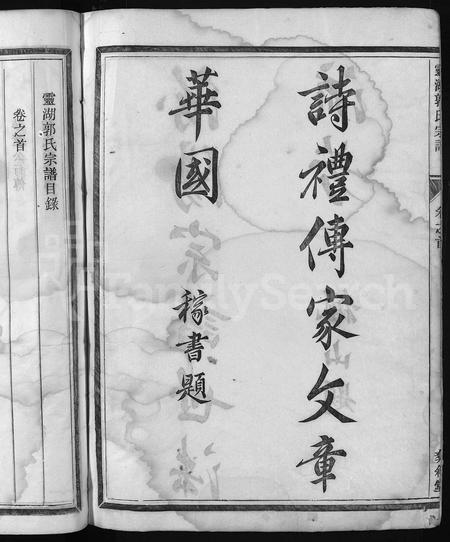 靈湖郭氏宗譜
卷之首
詩禮傳家文章
華國
稼書題
靈湖郭氏宗譜目錄
卷之首
FamilySearch